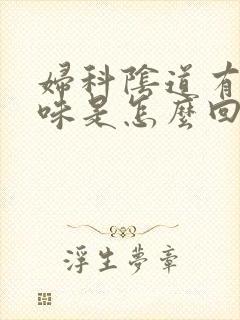 婦科陰道有
味是怎麼回
浮生夢章